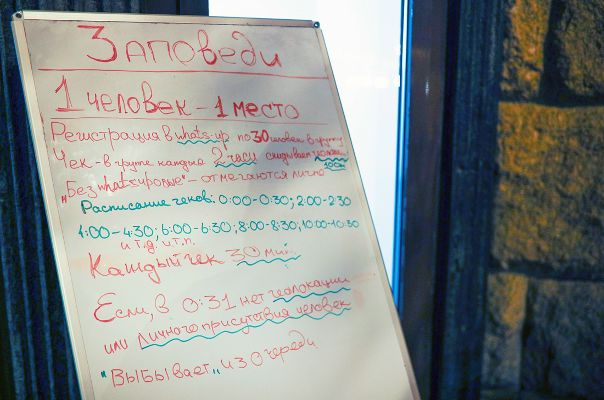 Заповеди
1 человек - 1 место
Регистрация в whats-up по 30 человек в группу
Чек-в группе каждые 2 часа скидывает геолок.
100%
"Без whatsupовые" - отмечаются лично
Расписание чеков: 0:00-0:30; 2:00-2:30
4:00-4:30; 6:00-6:30; 8:00-8:30; 10:00-10:30
и т.д. и т.п.
Каждый чек 30 мин.
Если, в 0:31 нет геолокации
или личного присутствия человек
"Выбывает" из очереди